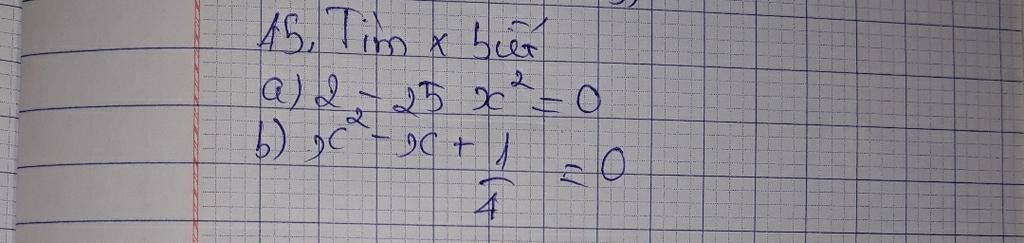 15, Tìm x biết
a) 2 - 25 x² = 0
b) x² - x + 1/4 = 0